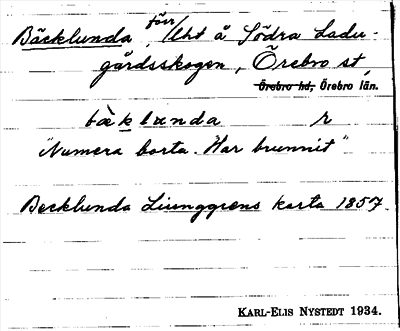 Bäcklunda, förr /lht å Södra Ladu-
gårdsskogen, Örebro st,
Örebro hd, Örebro län.
bæ̀klunda r
"Numera borta. Har brunnit"
Becklunda Liunggrens karta 1857.
KARL-ELIS NYSTEDT 1934.